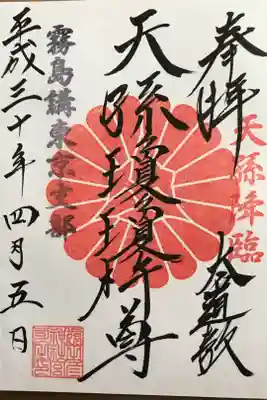 奉拝
天孫降臨
天孫瓊瓊杵尊
霧島講東京支部
平成三十年四月五日